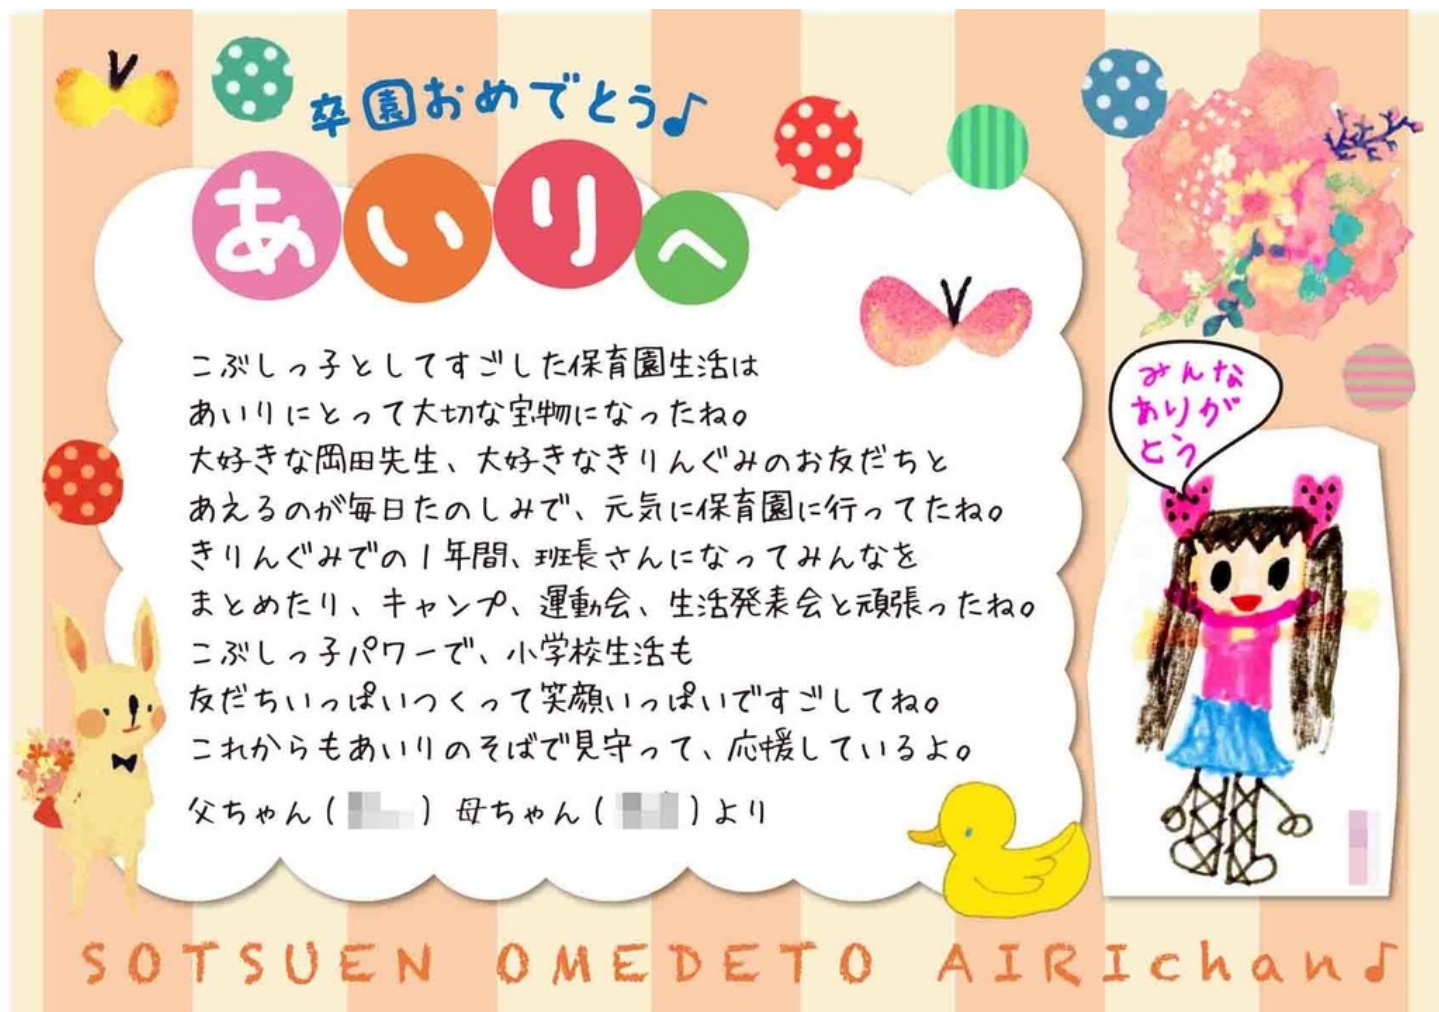 卒園おめでとう♪
あいりへ
こぶしっ子としてすごした保育園生活は
あいりにとって大切な宝物になったね。
大好きな岡田先生、大好きなきりんぐみのお友だちと
あえるのが毎日たのしみで、元気に保育園に行ってたね。
きりんぐみでの1年間、班長さんになってみんなを
まとめたり、キャンプ、運動会、生活発表会と頑張ったね。
こぶしっ子パワーで、小学校生活も
友だちいっぱいつくって笑顔いっぱいですごしてね。
これからもあいりのそばで見守って、応援しているよ。
父ちゃん( ) 母ちゃん( )より
みんな
ありが
とう
SOTSUEN OMEDETO AIRIchan♪